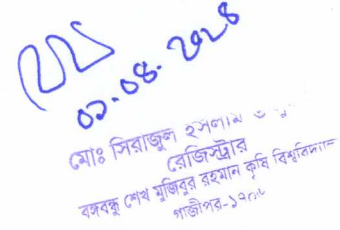 ০১.০৪.২০২৪
মোঃ সিরাজুল ইসলাম
রেজিস্ট্রার
বঙ্গবন্ধু শেখ মুজিবুর রহমান কৃষি বিশ্ববিদ্যালয়
গাজীপুর-১৭০৬